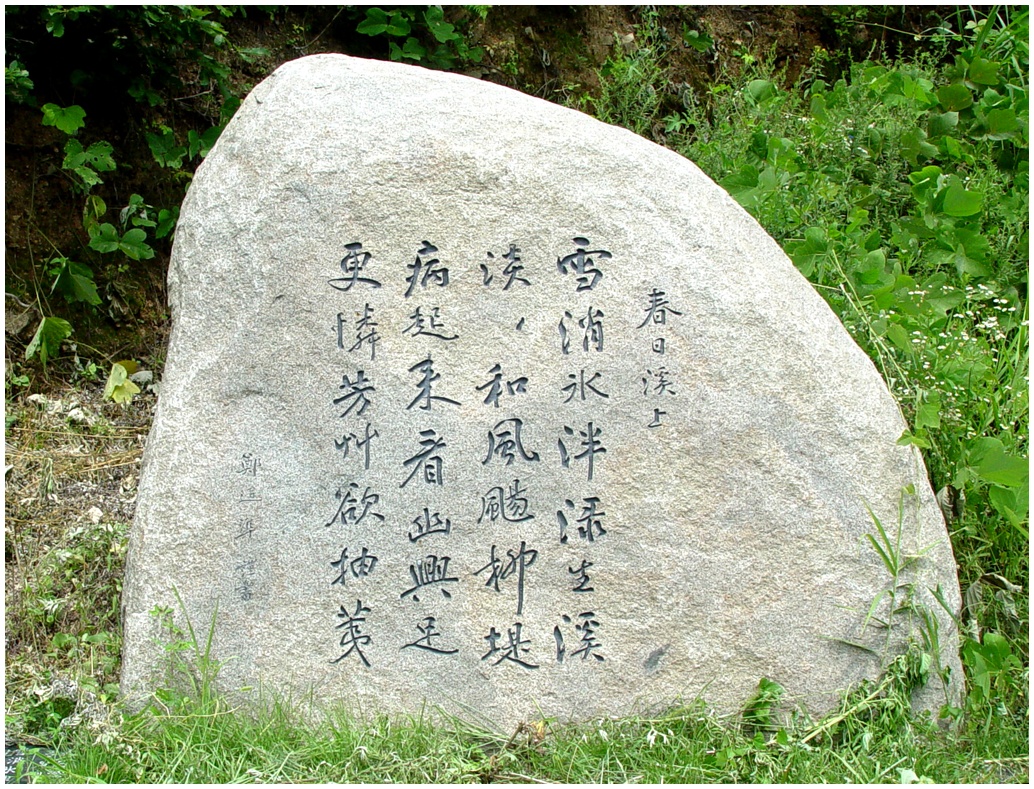 春日溪上
雪消氷泮淥生溪
淡、和風颺柳堤
病起来看幽興足
更憐芳艸欲抽荑
鄭道準 書